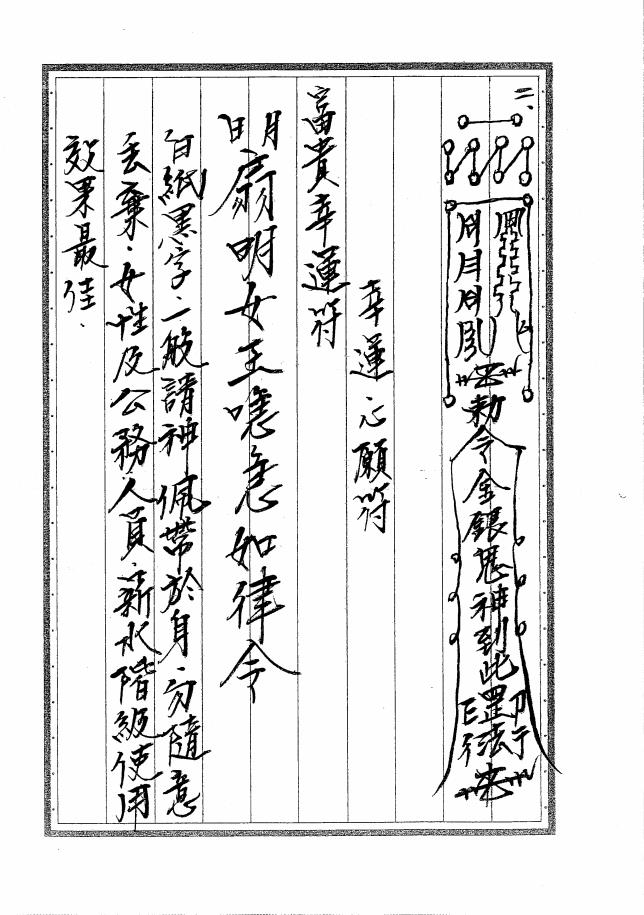 二、
勅令金銀鬼神到此罡法
幸運心願符
富貴幸運符
明扇明女王嗯急如律令
白紙黑字、一般請神佩帶於身、勿隨意
丟棄、女性及公務人員、薪水階級使用
效果最佳、